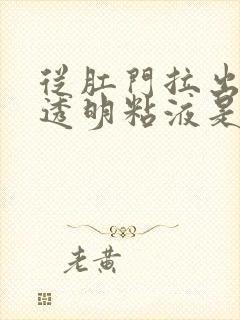 從肛門拉出
透明粘液是
老黄